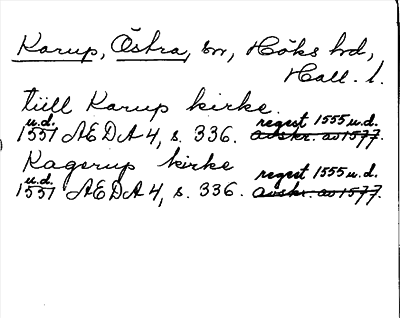 Karup, Östra, sn, Höks hd,
Hall. l.
till Karup kirke.
u.d. regest 1555 u.d.
1551 ÆDA 4, s. 336. avskr. av 1577.
Kagerup kirke regest 1555 u.d.
u.d.
1551 ÆDA 4, s. 336. avskr. av 1577.